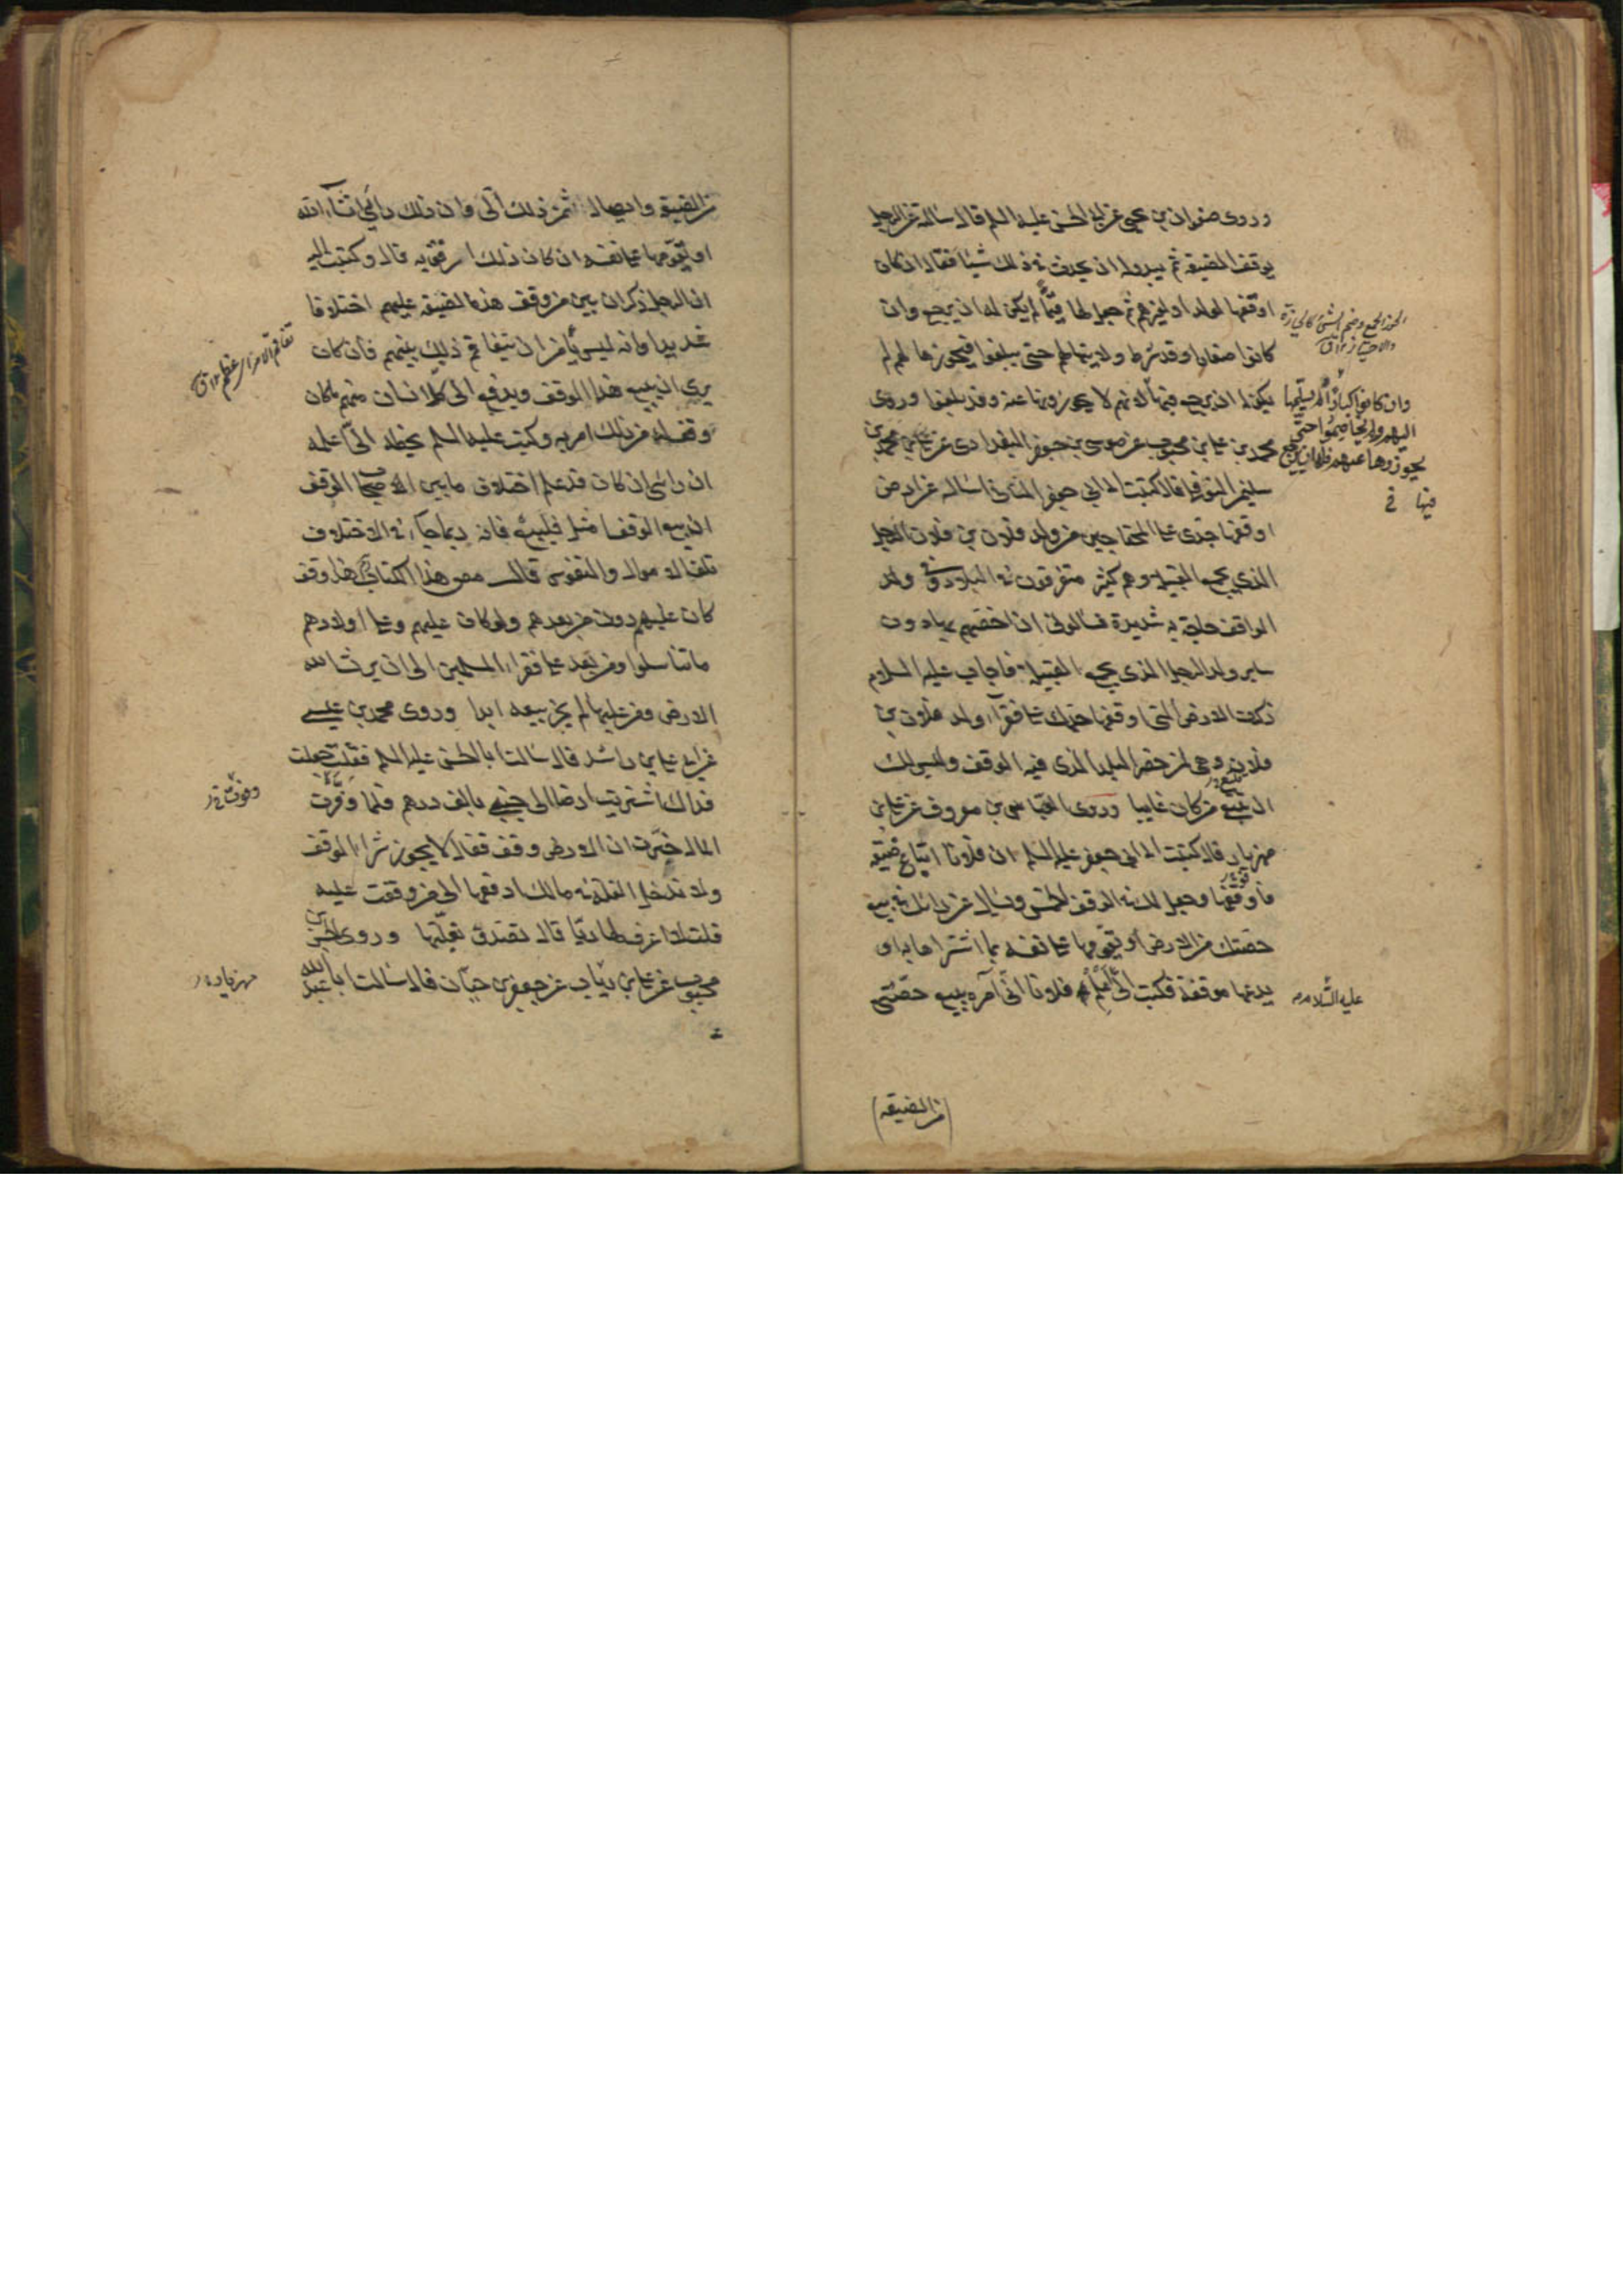 وروى صفوان بن يحيى عن ابى الحسن عليه السلم قال سالته عن الرجل
يوقف الضيعة ثم يبدو له ان يحدث فى ذلك شيئا فقال ان كان
اوقفها لولده او لغيرهم ثم جعل لها قيّما لم يكن له ان يرجع وان
كانوا صغارا وقد شرط ولايتها لهم حتى يبلغوا فيحوزها لهم لم
يكن له ان يرجع فيها لانهم لا يحوزونها عنه وقد بلغوا وروى
محمد بن على بن محبوب عن موسى بن جعفر البغدادى عن على بن محمد بن
سليمن النوفلى قال كتبت الى ابى جعفر الثانى اساله عن ارض
اوقفها جدى على المحتاجين من ولد فلان بن فلان الرجل
الذى يجمع القبيلة وهم كثير متفرقون فى البلاد وفى ولد
الواقف حاجة شديدة فسالونى ان اخصهم بها دون
ساير ولد الرجل الذى يجمع القبيلة فاجاب عليه السلام
ذكرت الارض التى اوقفها جدك على فقرآء ولد فلان بن
فلان وهى لمن حضر البلد الذى فيه الوقف وليس لك
ان تتبع من كان غايبا وروى العباس بن معروف عن على بن
مهزيار قال كتبت الى ابى جعفر عليه السلم ان فلانا ابتاع ضيعة
فاوقفها وجعل لك فى الوقف الخمس ويسال عن رايك فى بيع
حصتك من الارض او تقويمها على نفسه بما اشتراها به او
يدعها موقفة فكتب الىّ اعلم فلانا انّى آمره ببيع حصّتى
وان كانوا كبارا لم يسلّمها
اليهم ولم يخاصموا حتى
يحوزوها عنهم فله ان يرجع
فيها
عليه السّلام
(من الضيعة)
من الضيعة وايصال ثمن ذلك الىّ وان ذلك رأيى انشآء الله
او يقومها على نفسه ان كان ذلك ارفق به قال وكتبت اليه
ان الرجل ذكر ان بين من وقف هذه الضيعة عليهم اختلافا
شديدا وانه ليس يأمن ان يتفاقم ذلك بينهم فان كان
يرى ان يبيع هذا الوقف ويدفع الى كل انسان منهم ما كان
وقف له من ذلك امرته وكتب عليه السلم بخطه الىّ اعلمه
ان رايى ان كان قد علم اختلاف ما بين اصحاب الوقف
ان بيع الوقف امثل فليبع فانه ربما جآء فى الاختلاف
تلف الاموال والنفوس قال مصنف هذا الكتاب هذا وقف
كان عليهم دون من بعدهم ولو كان عليهم وعلى اولادهم
ما تناسلوا ومن بعد على فقراء المسلمين الى ان يرث الله
الارض ومن عليها لم يجز بيعه ابدا وروى محمد بن عيسى
عن ابى على بن راشد قال سالت ابا الحسن عليه السلم فقلت جعلت
فداك اشتريت ارضا الى جنبى بالف درهم فلما وفّرت
المال خبّرت ان الارض وقف فقال لا يجوز شراء الوقف
ولا تدخل الغلة فى مالك ادفعها الى من وقفت عليه
قلت لا اعرف لها ربّا قال تصدق بغلّتها وروى الحسن بن
محبوب عن على بن رئاب عن جعفر بن حيّان قال سالت ابا عبد الله
تفاقم الامر اى عظم